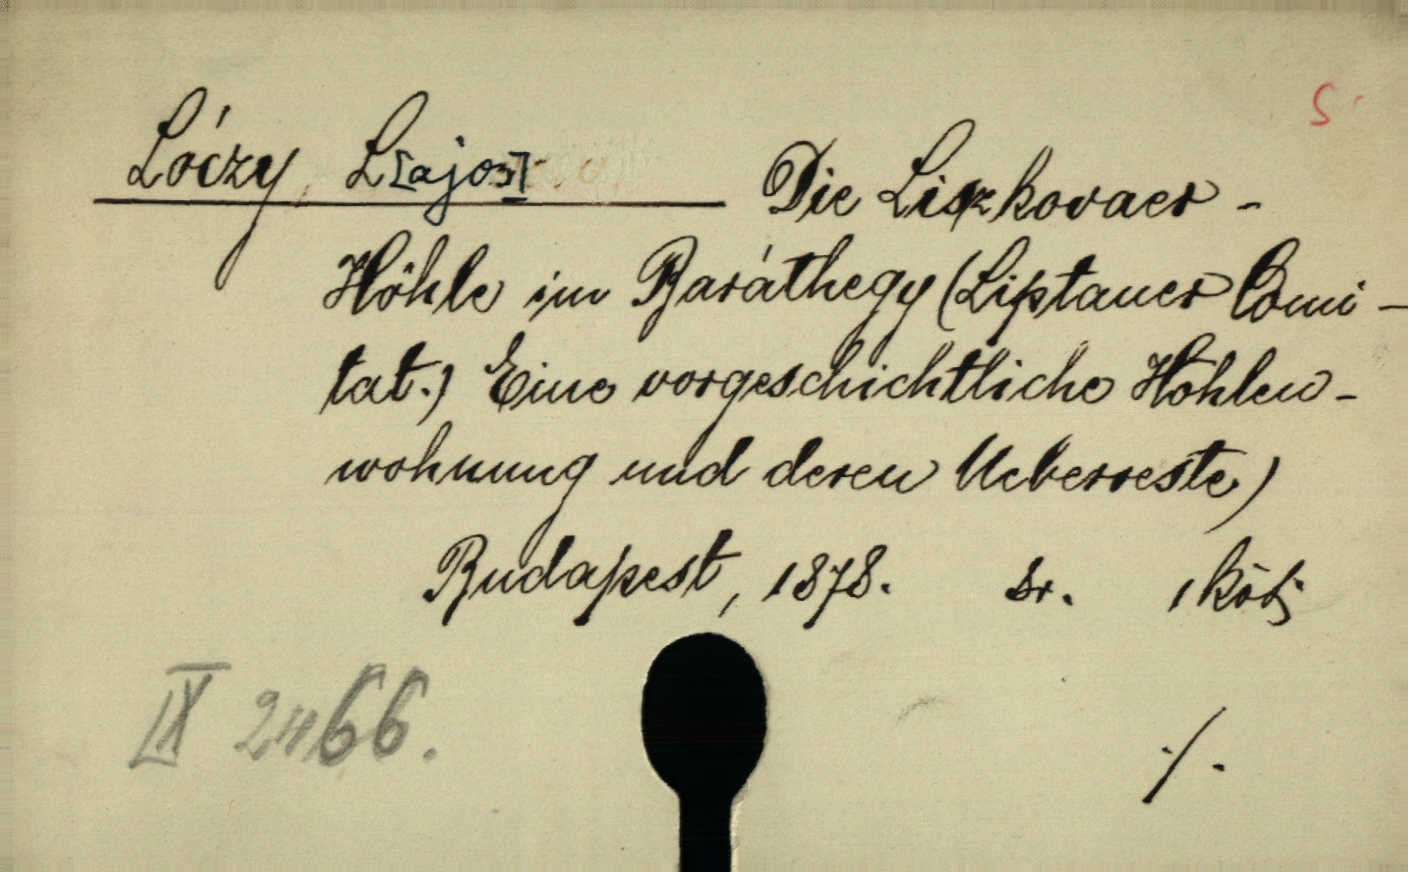 S
Lóczy L[ajos] Die Liszkovaer-
Höhle im Baráthegy (Liptauer Comi-
tat.) Eine vorgeschichtliche Höhlen-
wohnung und deren Ueberreste)
Budapest, 1878. 8r. 1 köt.
IX 2466.
./.